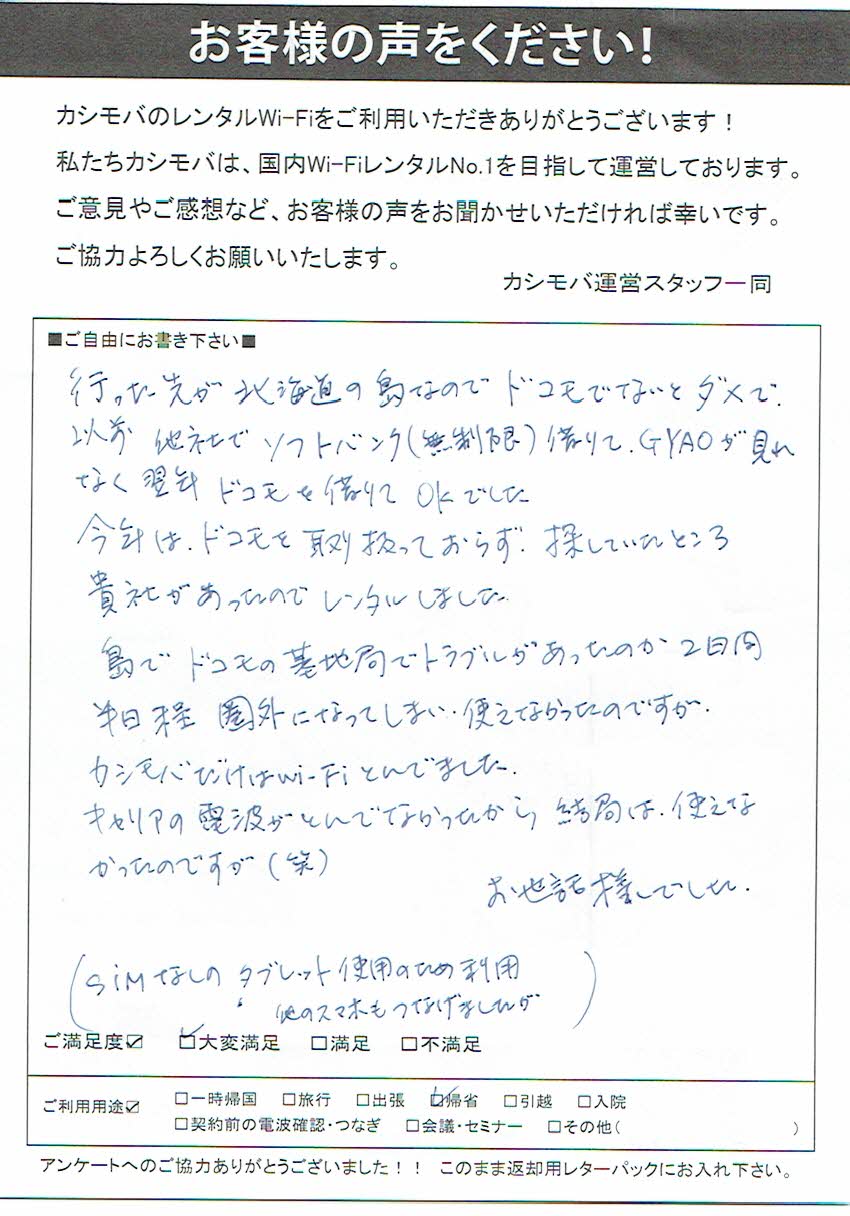 お客様の声をください!
カシモバのレンタルWi-Fiをご利用いただきありがとうございます!
私たちカシモバは、国内Wi-FiレンタルNo.1を目指して運営しております。
ご意見やご感想など、お客様の声をお聞かせいただければ幸いです。
ご協力よろしくお願いいたします。
カシモバ運営スタッフ一同
■ご自由にお書き下さい■
行った先が 北海道の島なので ドコモでないとダメで.
以前 他社で ソフトバンク(無制限)借りて.GYAOが見れ
なく翌年 ドコモを借りて OKでした
今年は.ドコモを取り扱っておらず.探していたところ
貴社があったのでレンタルしました.
島でドコモの基地局でトラブルがあったのか 2日間
半日程 圏外になってしまい.使えなかったのですが.
カシモバだけはwi-Fiとんでました.
キャリアの電波がとんでなかったから 結局は.使えな
かったのですが(笑)
お世話様でした.
(SiMなしのタブレット使用のため利用
他のスマホもつなげましたが)
ご満足度☑ ☑大変満足 □満足 □不満足
ご利用用途☑ □一時帰国 □旅行 □出張 ☑帰省 □引越 □入院
□契約前の電波確認・つなぎ □会議・セミナー □その他( )
アンケートへのご協力ありがとうございました!! このまま返却用レターパックにお入れ下さい。